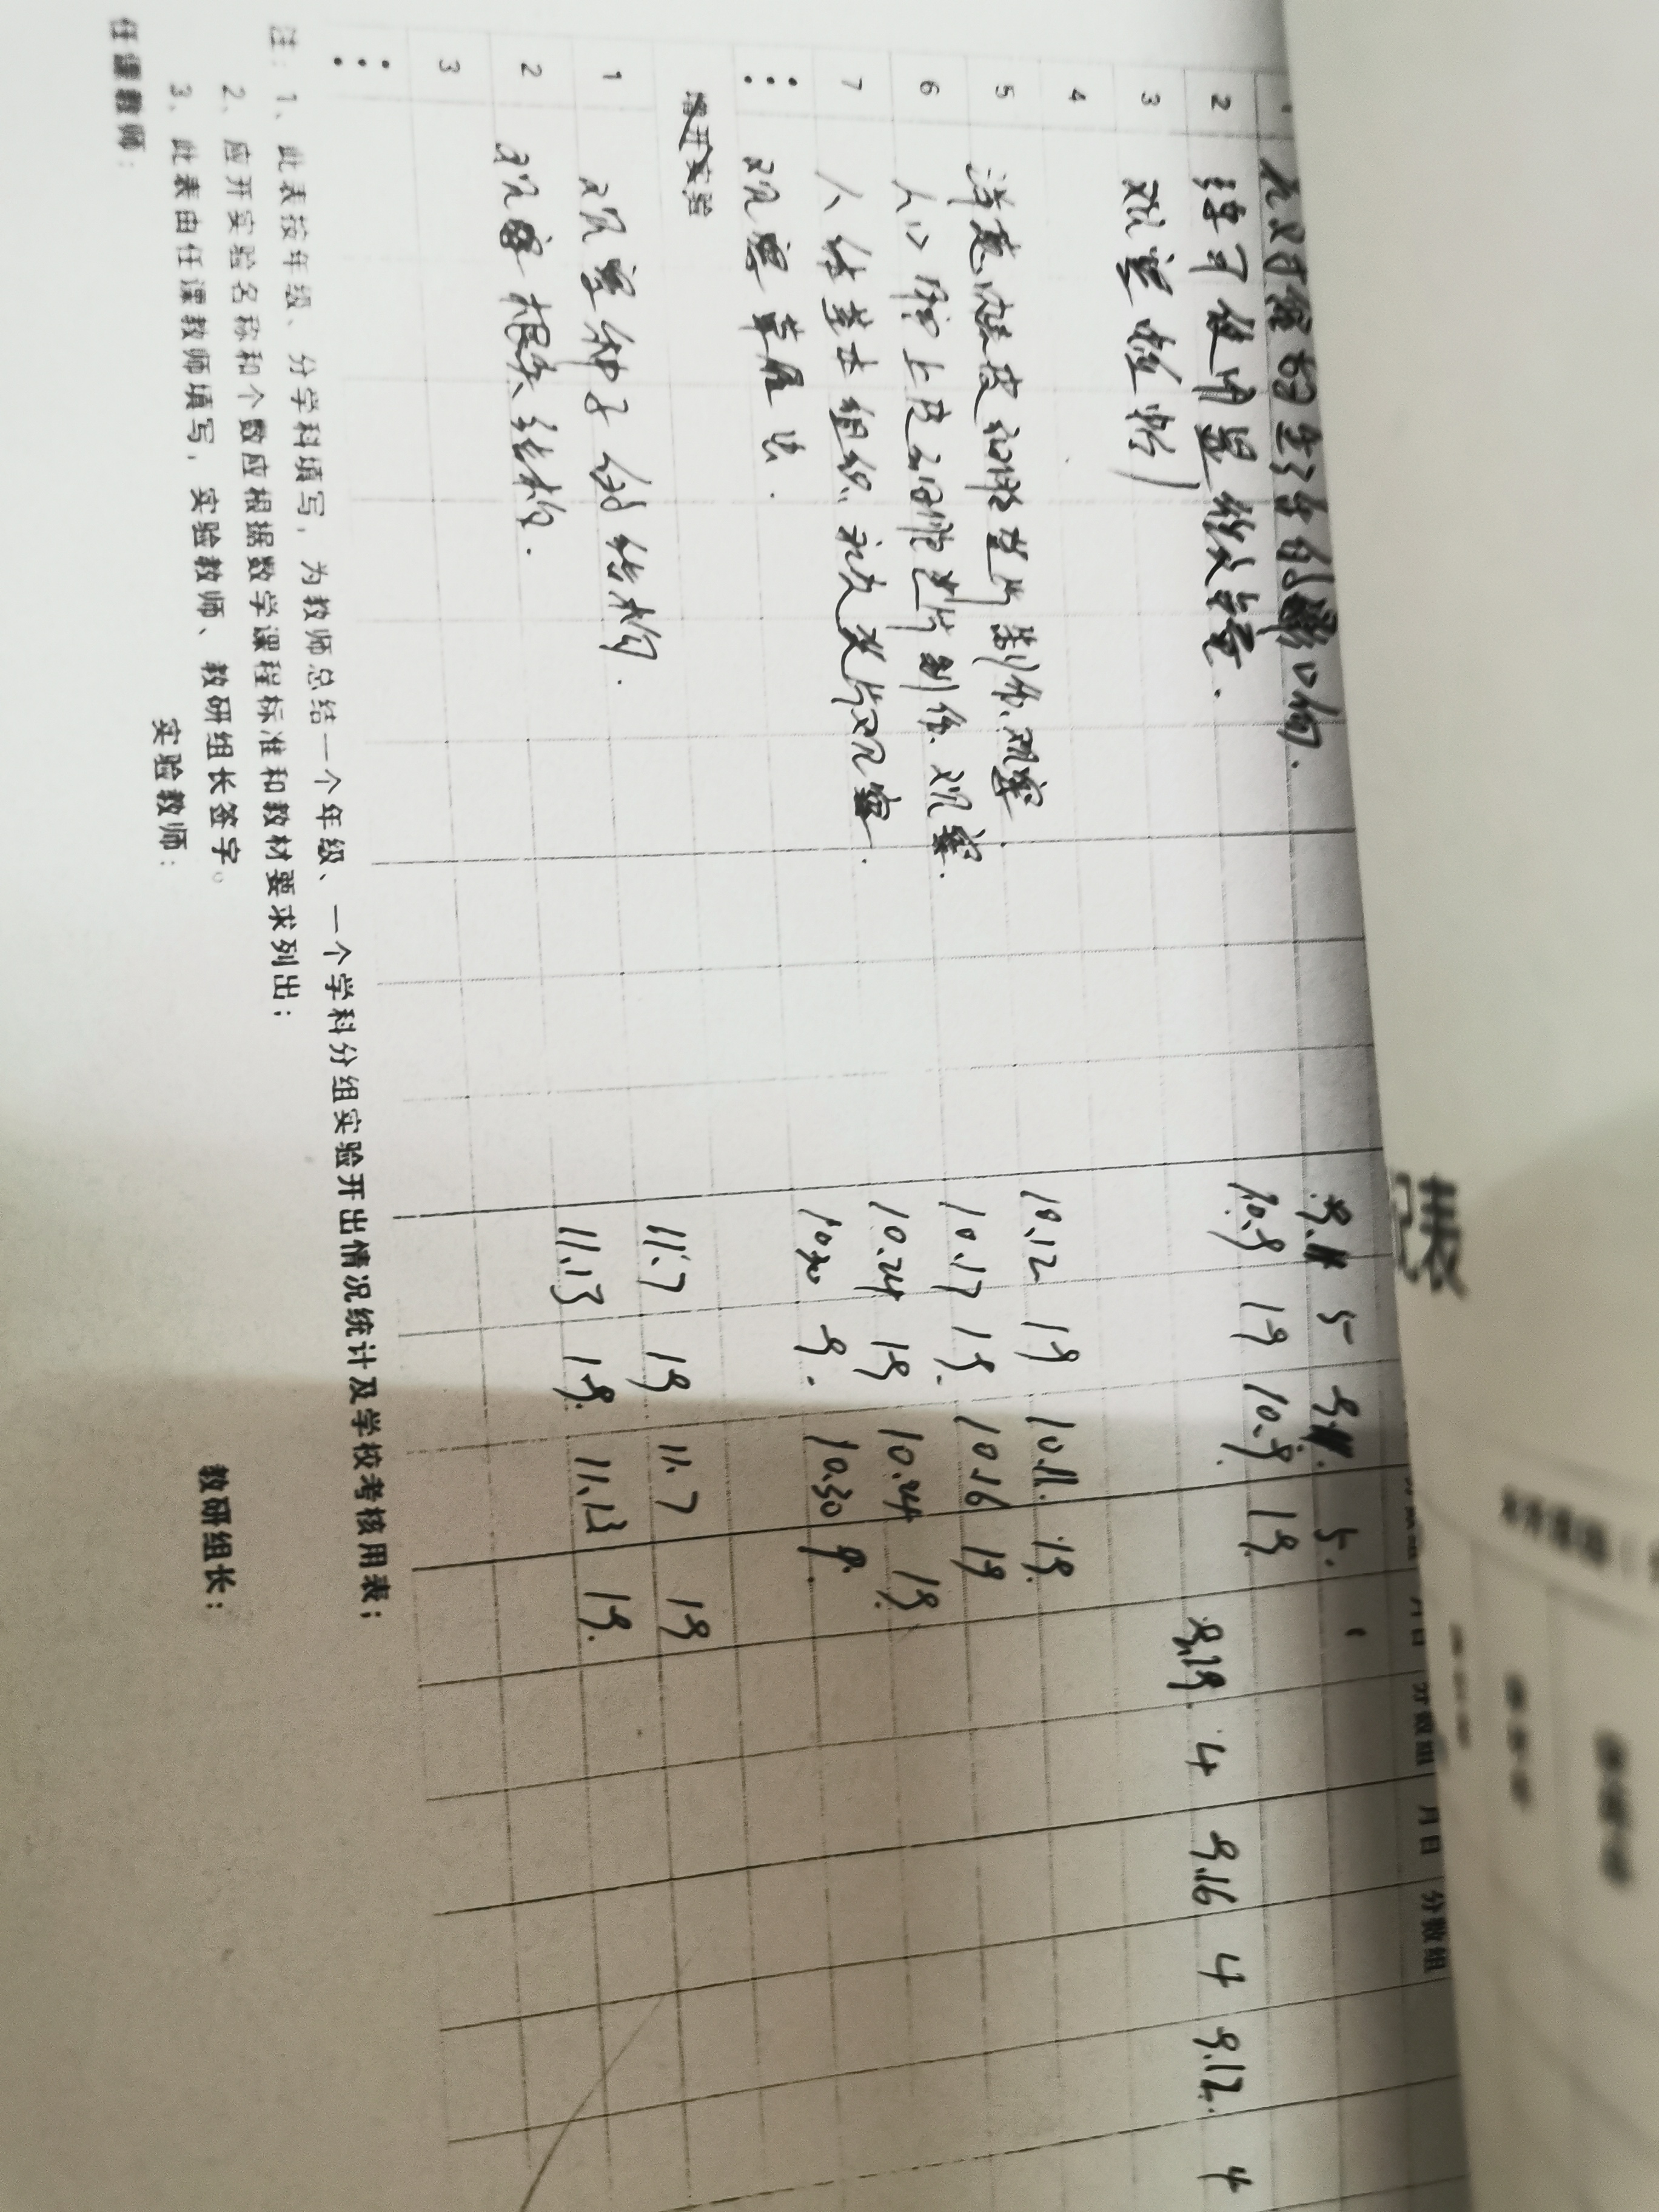 表
月日 分数组 月日 分数组
光对鼠妇生活的影响. 9.11 5 9.11. 5.
2 练习使用显微镜. 10.9 19 10.9. 19.
3 观察蚯蚓 9.19. 4 9.16 4 9.12. 4
4
5 洋葱表皮细胞装片制作.观察. 10.12 19 10.11. 19.
6 人口腔上皮细胞装片制作.观察. 10.17 19. 10.16 19
7 人体基本组织永久装片观察. 10.24 19 10.24 19.
⋮ 观察草履虫. 10.30 9. 10.30 9.
增开实验
1 观察种子的结构. 11.7 19 11.7 19
2 观察根尖结构. 11.13 19. 11.13 19.
3
⋮
注: 1、此表按年级、分学科填写，为教师总结一个年级、一个学科分组实验开出情况统计及学校考核用表；
2、应开实验名称和个数应根据数学课程标准和教材要求列出；
3、此表由任课教师填写，实验教师、教研组长签字。
任课教师: 实验教师: 教研组长: